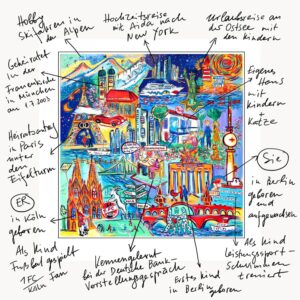 Hobby
Skifahren in
den Alpen
Hochzeitsreise
mit Aida nach
New York
Urlaubsreise an
der Ostsee mit
den Kindern
Geheiratet
in der
Frauenkirche
in München
am 1.7.2005
Eigenes
Haus
mit
Kindern
+
Katze
Heiratsantrag
in Paris
unter
dem
Eifelturm
Sie
in Berlin
geboren
und
aufgewachsen
ER
in Köln
geboren
Als Kind
Fußball gespielt
1 FC
Köln Fan
Kennengelernt
bei der Deutsche Bank-
Vorstellungsgespräch
Erstes Kind
in Berlin geboren
Als Kind
Leistungssport-
Schwimmen
trainiert